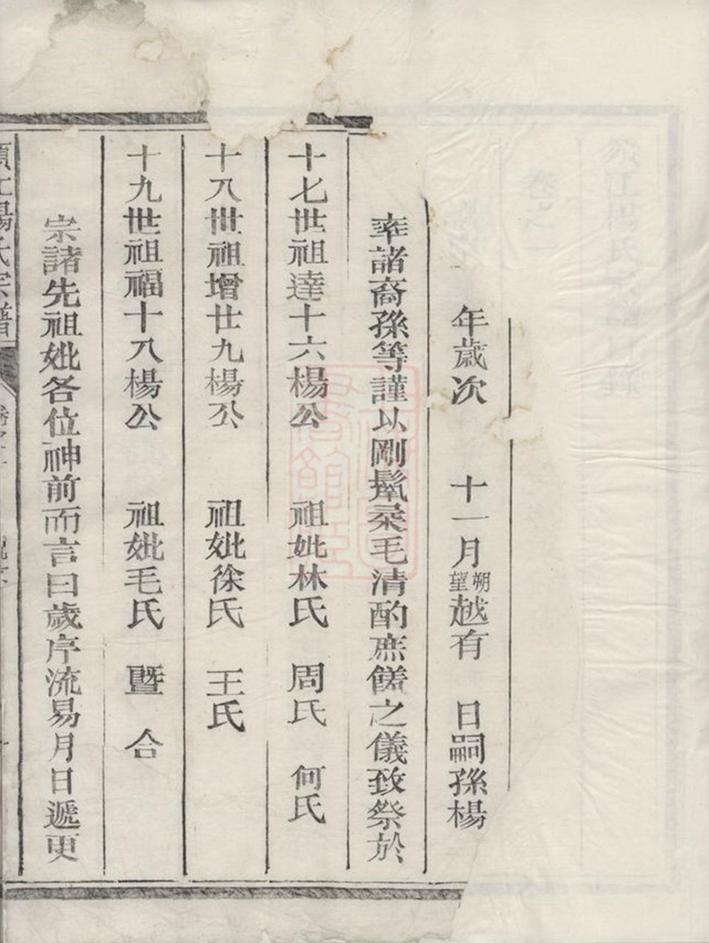 年歲次　十一月朔望越有　日嗣孫楊
率諸裔孫等謹以剛鬣柔毛清酌庶饈之儀致祭於
十七世祖達十六楊公　祖妣林氏　周氏　何氏
十八世祖增廿九楊公　祖妣徐氏　王氏
十九世祖福十八楊公　祖妣毛氏　暨　合
宗諸先祖妣各位神前而言曰歲序流易月日遞更
江楊氏宗譜